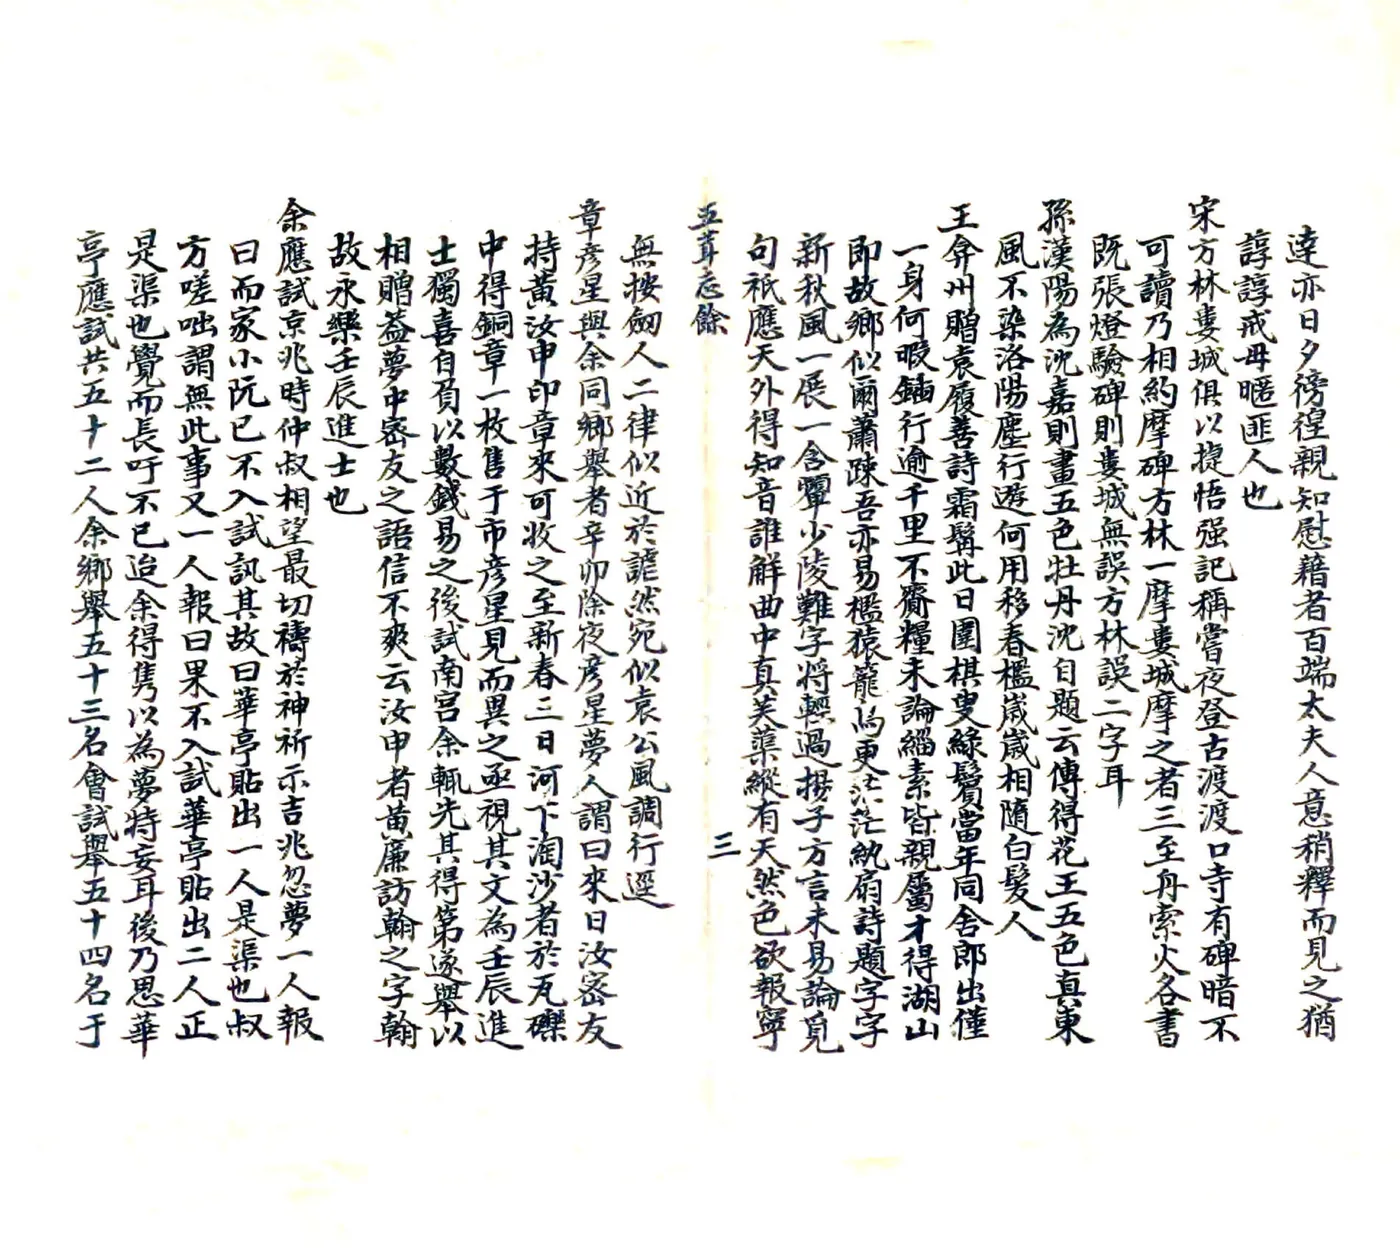 達亦日夕徬徨親知慰藉者百端太夫人意稍釋而見之猶
諄諄戒毋暱匪人也
宋方林婁城俱以捷悟强記稱嘗夜登古渡渡口寺有碑暗不
可讀乃相約摩碑方林一摩婁城摩之者三至舟索火各書
既張燈驗碑則婁城無誤方林誤二字耳
孫漢陽為沈嘉則畫五色牡丹沈自題云傳得花王五色真東
風不染洛陽塵行遊何用移春檻歲歲相隨白髮人
王弇州贈袁履善詩霜髯此日圍棋叟綠鬢當年同舍郎出僅
一身何暇鍤行逾千里不齎糧未論緇素皆親屬才得湖山
即故鄉似爾蕭疎吾亦易檻猿籠鳥更茫茫紈扇詩題字字
新秋風一展一含顰少陵難字將輕過揚子方言未易論覓
句祇應天外得知音誰解曲中真芙蕖縱有天然色欲報寧
五茸志餘
三
無按劒人二律似近於謔然宛似袁公風調行逕
章彦星與余同鄉舉者辛卯除夜彦星夢人謂曰來日汝密友
持黃汝申印章來可收之至新春三日河下淘沙者於瓦礫
中得銅章一枚售于市彦星見而異之亟視其文為壬辰進
士獨喜自負以數錢易之後試南宮余輒先其得第遂舉以
相贈葢夢中密友之語信不爽云汝申者黃廉訪翰之字翰
故永樂壬辰進士也
余應試京兆時仲叔相望最切禱於神祈示吉兆忽夢一人報
曰而家小阮已不入試訊其故曰華亭貼出一人是渠也叔
方嗟咄謂無此事又一人報曰果不入試華亭貼出二人正
是渠也覺而長吁不已迨余得雋以為夢特妄耳後乃思華
亭應試共五十二人余鄉舉五十三名會試舉五十四名于